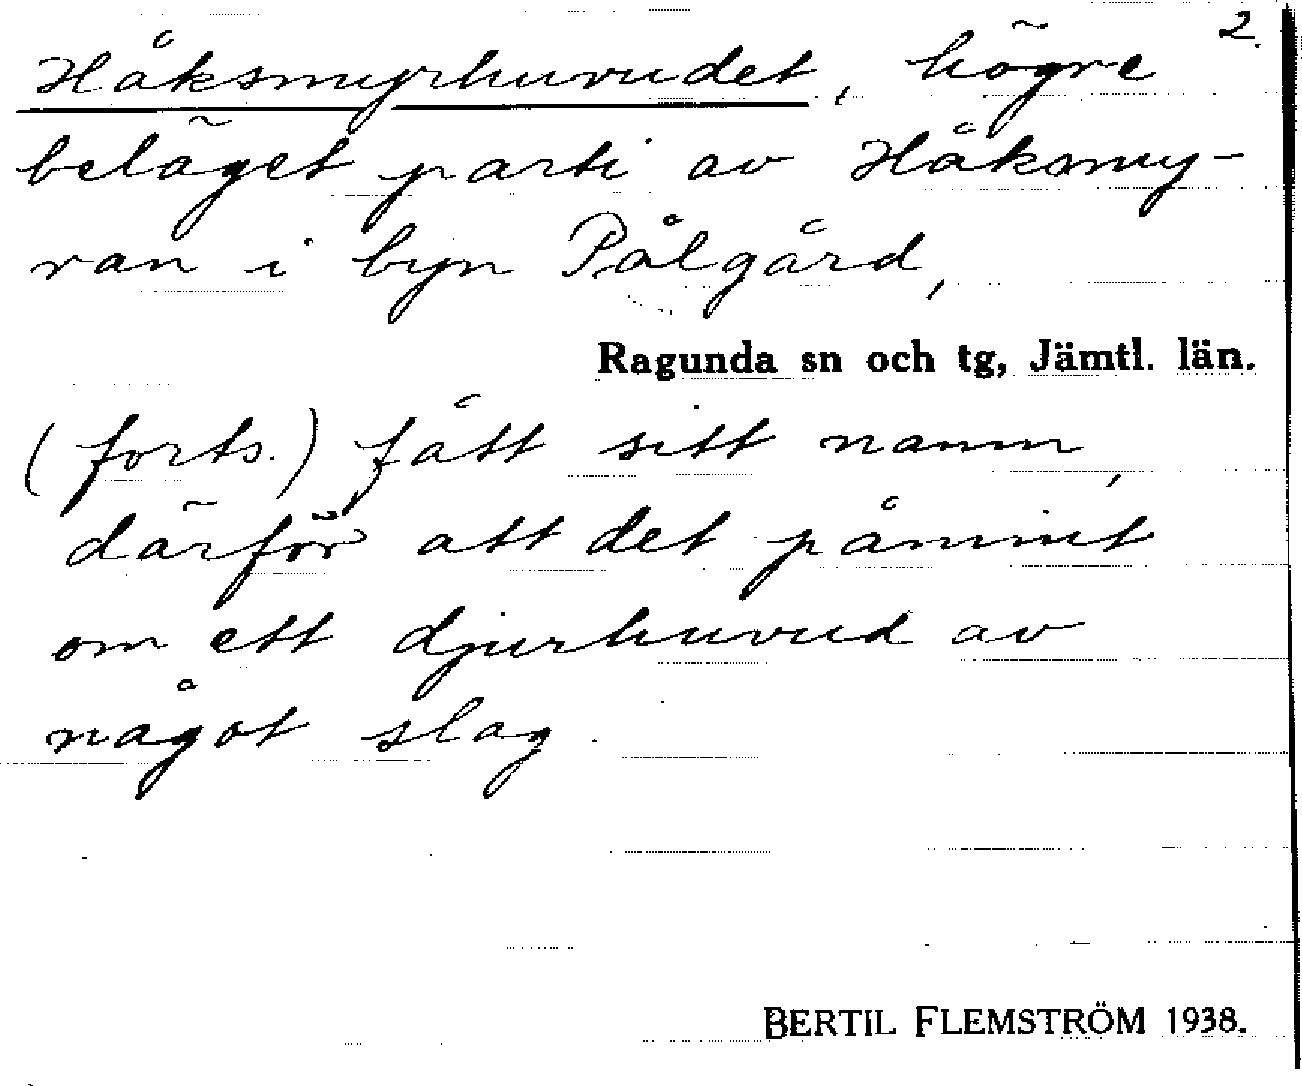 2.
Håksmyrhuvudet, högre
beläget parti av Håksmy-
ran i byn Pålgård,
Ragunda sn och tg, Jämtl. län.
(forts.) fått sitt namn,
därför att det påmint
om ett djurhuvud av
något slag.
BERTIL FLEMSTRÖM 1938.